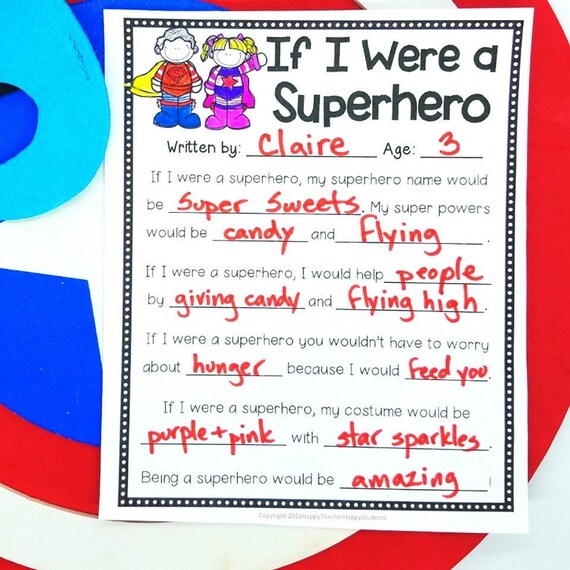 If I Were a
Superhero
Written by: Claire Age: 3
If I were a superhero, my superhero name would
be Super Sweets. My super powers
would be candy and Flying.
If I were a superhero, I would help people
by giving candy and flying high.
If I were a superhero you wouldn't have to worry
about hunger because I would feed you.
If I were a superhero, my costume would be
purple + pink with star sparkles.
Being a superhero would be amazing!
Copyright 2016HappyTeacherHappyStudents